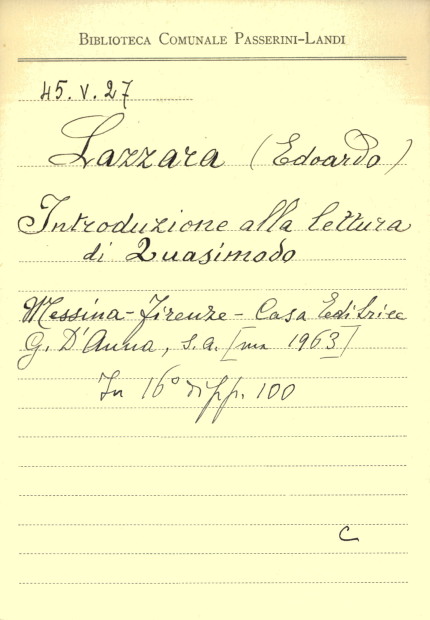 BIBLIOTECA COMUNALE PASSERINI-LANDI
45.V.27
Lazzara (Edoardo)
Introduzione alla lettura
di Quasimodo
Messina-Firenze - Casa Editrice
G. D'Anna, s.a. [ma 1963]
In 16° di pp. 100
C